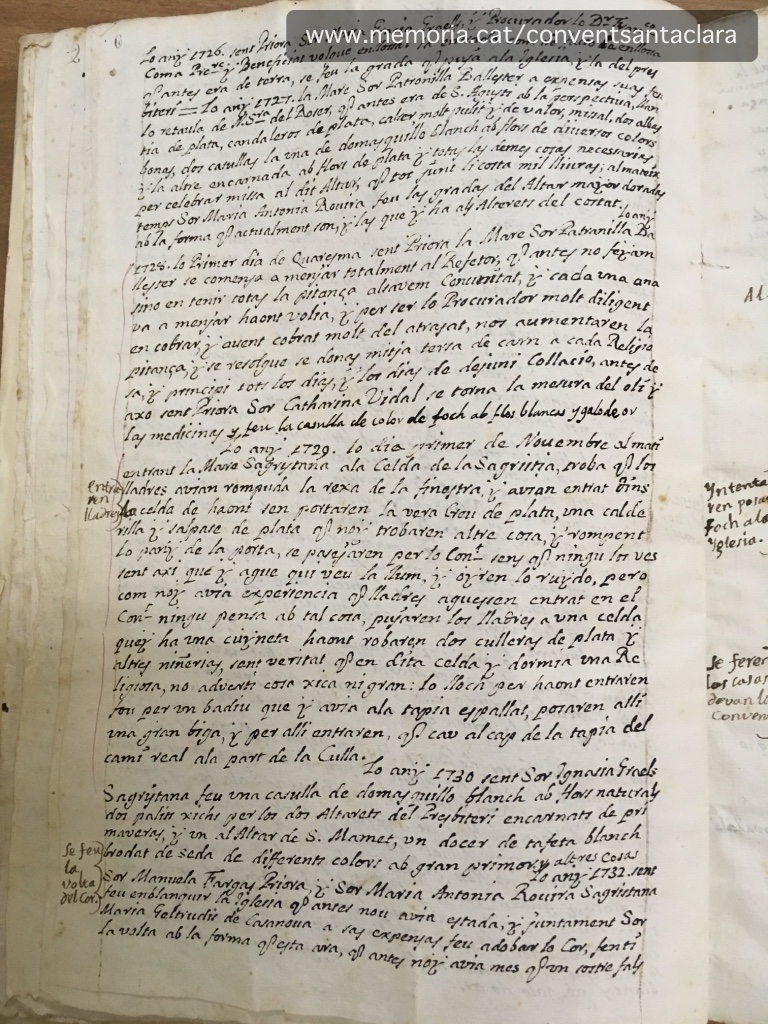 www.memoria.cat/conventsantaclara
Lo any 1726. sent Priora Sor Graells, y Procurador lo Dr.
Coma Pre. y Beneficiat volgue enllosar la
qe antes era de terra, se feu la grada qe puja ala Iglesia, y la del pres
biteri = Lo any 1727. la Mare Sor Patronilla Ballester a expensas suas feu
lo retaula de N. Sra. del Roser, qe antes era de S. Agusti ab la perspectiva,
tia de plata, candaleros de plata, calser molt pulit y de valor, missal, dos albas
bonas, dos casullas la una de domasquillo blanch ab flors de diversos colors
y la altre encarnada ab flors de plata y totas las demes cosas necessarias
per celebrar missa al dit Altar, qe tot junt li costa mil lliuras; al mateix
temps Sor Maria Antonia Rovira feu las gradas del Altar major dorades
ab la forma qe actualment son, y las que y ha als Alterets del costat. Lo any
1728. lo Primer dia de Quaresma sent Priora la Mare Sor Patranilla Ba
llester se comensa a menjar totalment al Refetor, qe antes no fejan
sino en tenir totas la pitança alsavem Comunitat, y cada una ana
va a menjar haont volia, y per ser lo Procurador molt diligent
en cobrar, y avent cobrat molt del atrasat, nos aumentaren la
pitança, y se resolgue se donas mitja tersa de carn a cada Religio
sa, y principi tots los dias, y los dias de dejuni Collacio, antes de
axo sent Priora Sor Catharina Vidal se torna la mesura del oli y
las medicinas y feu la casulla de color de foch ab flos blancas y galo de or
Lo any 1729. lo dia primer de Novembre al mati
entrant la Mare Sagrystana ala Celda de la Sagristia, troba qe los
lladres avian rompuda la rexa de la finestra, y avian entrat dins
la celda de haont sen portaren la vera Creu de plata, una calde
rilla y salpase de plata qe noy trobaren altre cosa, y rompent
lo pany de la porta, se pasejaren per lo Cont. sens qe ningu los ves
sent axi que y ague qui veu la llum, y oyren lo ruydo, pero
com noy avia experiencia qe lladres aguessen entrat en el
Cont. ningu pensa ab tal cosa, pujaren los lladres a una celda
quey ha una cuyneta haont robaren dos culleras de plata y
altres niñerias, sent veritat qe en dita celda y dormia una Re
ligiosa, no adverti cosa xica ni gran: lo lloch per haont entraren
fou per un badiu que y avia ala tapia espallat, posaren alli
una gran biga, y per alli entraren, qe cau al cap de la tapia del
cami real ala part de la Culla.
Lo any 1730 sent Sor Ignasia Graels
Sagrystana feu una casulla de domasquillo blanch ab flors naturals
dos palits xichs per los dos Altarets del Presbiteri encarnats de pri
maveras, y un al Altar de S. Mamet, un docer de tafeta blanch
brodat de seda de differents colors ab gran primor, y altres cosas
Lo any 1732. sent
Sor Manuela Fargas Priora, y Sor Maria Antonia Rovira Sagristana
feu enblanquir la Iglesia qe antes nou avia estada, y juntament Sor
Maria Geltrudis de Casanova a sas expensas feu adobar lo Cor, fenti
la volta ab la forma qe esta ara, qe antes noy avia mes qe un sostre fals
entra
ren
lladres
Se feu
la
volta
del Cor.
Al
Yntenta
ren posar
foch ala
Yglesia.
Se feren
las casas
devan lo
Conven